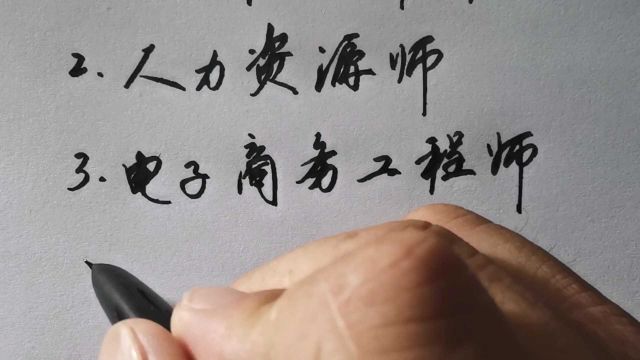 2.人力资源师
3.电子商务工程师